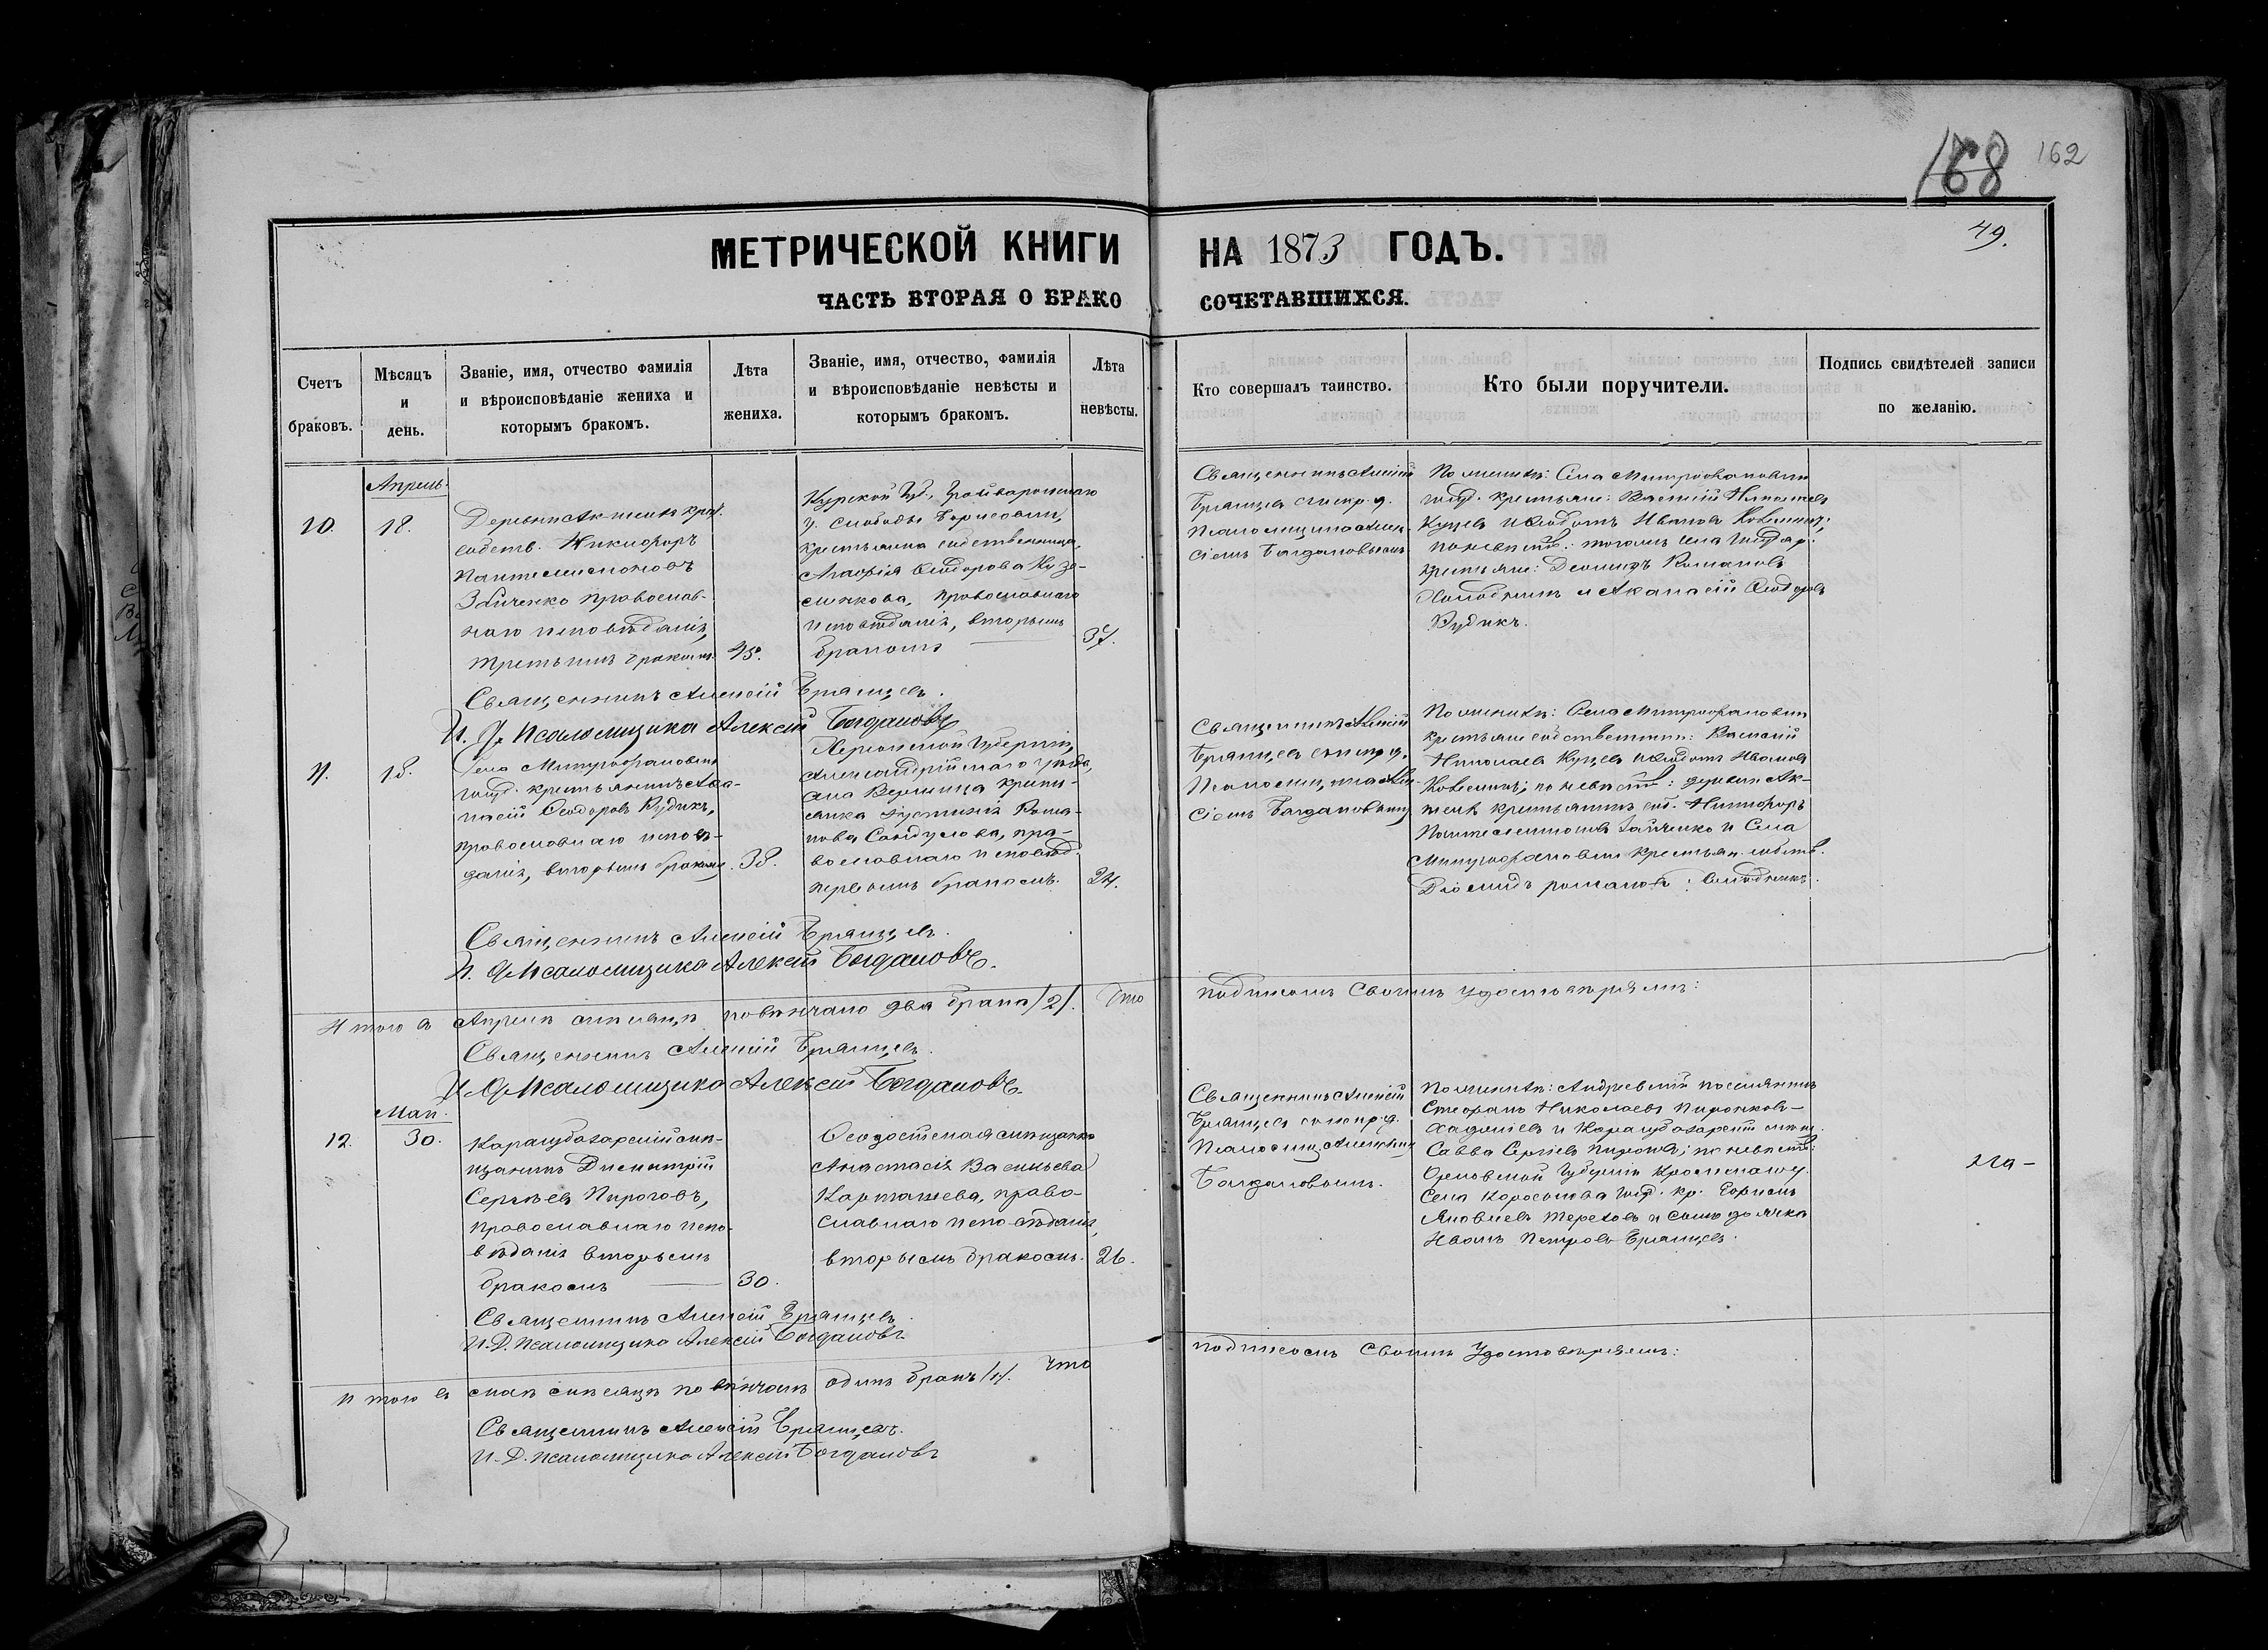 168 162
49.
МЕТРИЧЕСКОЙ КНИГИ НА 1873 ГОДЪ.
ЧАСТЬ ВТОРАЯ О БРАКО СОЧЕТАВШИХСЯ.
Счетъ браковъ.
Мѣсяцъ и день.
Званіе, имя, отчество фамилія
и вѣроисповѣданіе жениха и
которымъ бракомъ.
Лѣта
жениха.
Званіе, имя, отчество, фамилія
и вѣроисповѣданіе невѣсты и
которымъ бракомъ.
Лѣта
невѣсты.
Кто совершалъ таинство.
Кто были поручители.
Подпись свидѣтелей записи
по желанію.
Апрель.
10.
18.
Деревни крест.
собств. Никифоръ
Пантелеимоновъ
Заиченко православ-
наго исповѣданія,
третьимъ бракомъ. 45.
Курской Губ., Грайворонскаго
у. слободы Борисовки,
крестьянка собственница,
Агафія Ѳеодорова Кузе-
менкова, православнаго
исповѣданія, вторымъ
бракомъ 37.
Священникъ Алексій
Брянцев с испр. д.
Псаломщика Алек-
сіемъ Богдановымъ
По женихѣ: Села Митрофановки
госуд. крестьяне: Василій Николаевъ
Куцев и Ѳеодотъ Иванов
по невѣстѣ: тогожъ села Государ.
крестьяне: Деомидъ Романовъ
и Аѳанасій Ѳеодоровъ
Рудикъ.
Священникъ Алексій Брянцевъ.
И. Д. Псаломщика Алексій Богдановъ
11.
18.
Села Митрофановки
госуд. крестьянинъ Аѳа-
насій Ѳеодоровъ Рудикъ,
православнаго исповѣ-
данія, вторымъ бракомъ. 38.
Херсонской Губерніи,
Александрійскаго уѣзда,
села Вершина кресть-
янка Іустинія Рома-
нова Сандулова, пра-
вославнаго исповѣд.
первымъ бракомъ. 24.
Священникъ Алексій
Брянцевъ с испр. д.
Псаломщика Алек-
сіемъ Богдановымъ
По женихѣ: Села Митрофановки
крестьяне собственники: Василій
Николаевъ Куцев и Ѳеодотъ Иванов
по невѣстѣ: деревни
крестьянинъ соб. Никифоръ
Пантелеимоновъ Зайченко и Села
Митрофановки крестьян. собств.
Діомидъ Романовъ
Священникъ Алексій Брянцевъ.
И. Д. Псаломщика Алексій Богдановъ.
Итого в Апрелѣ мѣсяцѣ повѣнчано два брака /2/. Что подписомъ своимъ удостовѣряемъ:
Священникъ Алексій Брянцевъ.
И. Д. Псаломщика Алексій Богдановъ.
Май.
12.
30.
мѣ-
щанинъ Димитрій
Сергѣевъ Пироговъ,
православнаго испо-
вѣданія вторымъ
бракомъ 30.
Ѳеодосійская мѣщанка
Анастасія Васильева
Карташева, право-
славнаго исповѣданія,
вторымъ бракомъ. 26.
Священникъ Алексій
Брянцевъ с испр. д.
Псаломщ. Алексіемъ
Богдановымъ.
По женихѣ: Андреевскій поселянинъ
Стефанъ Николаевъ
и мѣщ.
Савва Сергѣев Пирогов; по невѣстѣ:
Орловской Губерніи Кромскаго у.
Села госуд. кр. Борисъ
Яковлевъ Тереховъ и
Иванъ Петровъ Брянцевъ.
Священникъ Алексій Брянцевъ
И. Д. Псаломщика Алексій Богдановъ
Итого в маѣ мѣсяцѣ повѣнчанъ одинъ бракъ /1/. Что подписомъ своимъ удостовѣряемъ:
Священникъ Алексій Брянцевъ.
И. Д. Псаломщика Алексій Богдановъ